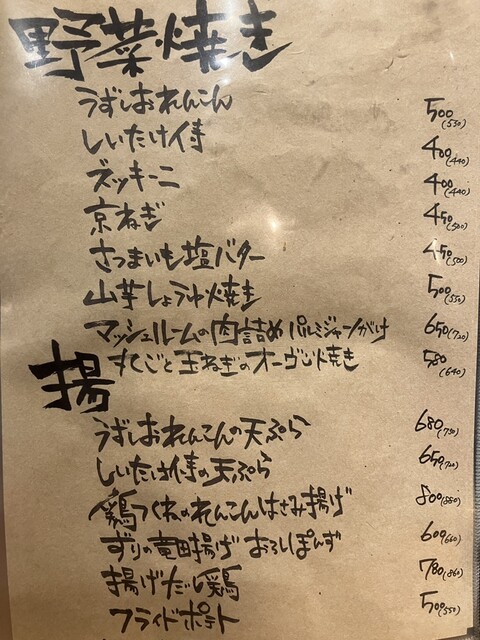 野菜焼き
うずしおれんこん 500(550)
しいたけ侍 400(440)
ズッキーニ 400(440)
京ねぎ 450(500)
さつまいも塩バター 450(500)
山芋しょうゆ焼き 500(550)
マッシュルームの肉詰め パルミジャーノがけ 650(720)
まるごと玉ねぎのオーヴン焼き 580(640)
揚
うずしおれんこんの天ぷら 680(750)
しいたけ侍の天ぷら 650(720)
鶏つくねのれんこんはさみ揚げ 800(880)
ずりの竜田揚げ おろしぽんず 600(660)
揚げだし鶏 780(860)
フライドポテト 500(550)